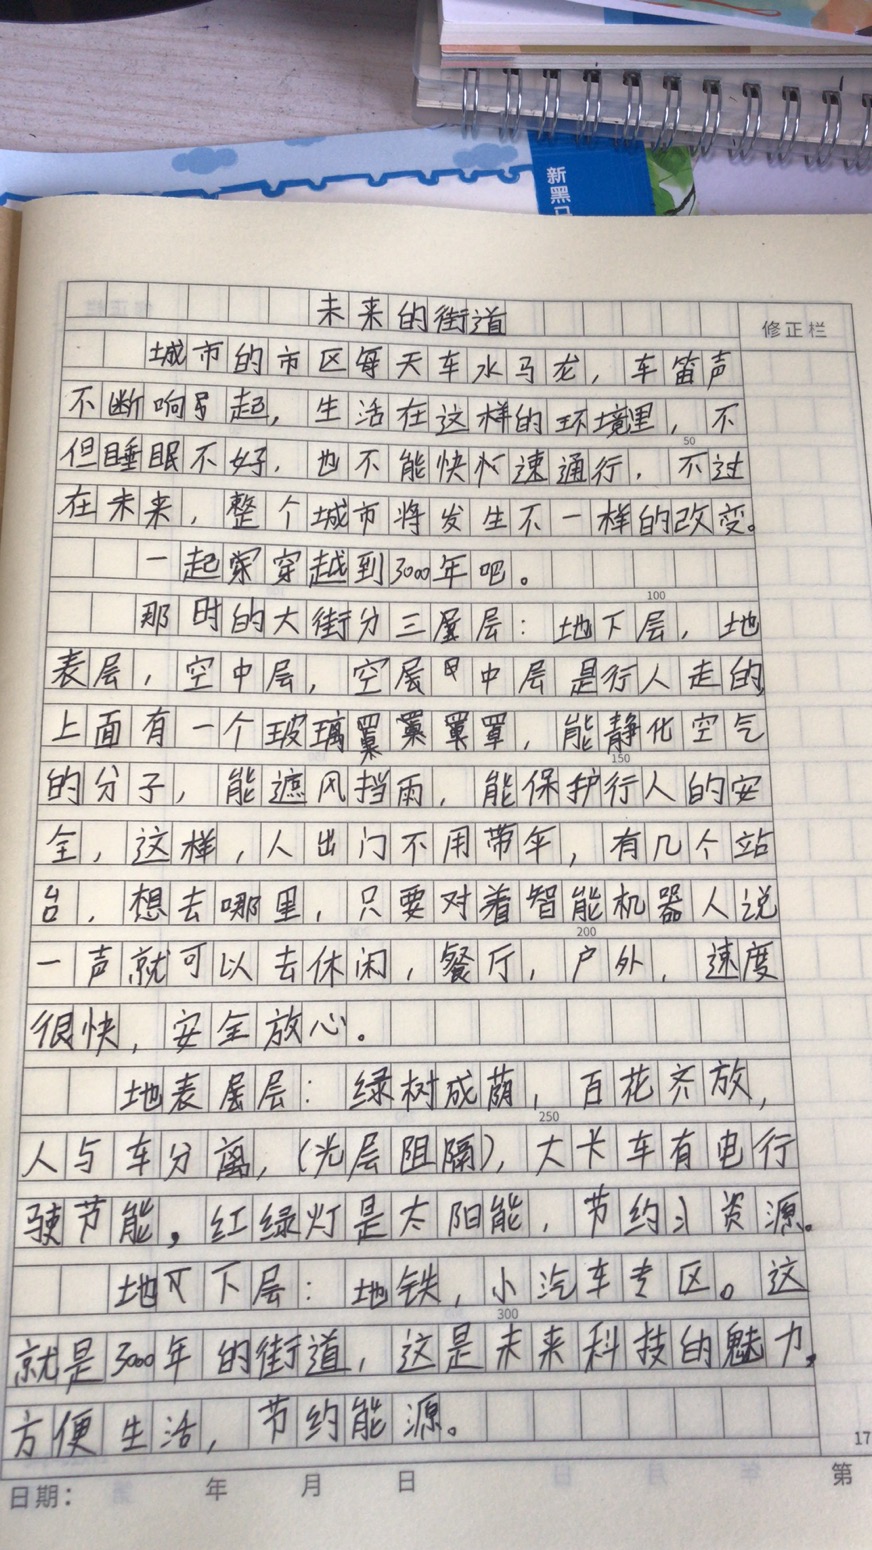 新黑马
未来的街道
修正栏
城市的市区每天车水马龙，车笛声
不断响起，生活在这样的环境里，不
50
但睡眠不好，也不能快速通行，不过
在未来，整个城市将发生不一样的改变。
一起穿越到3000年吧。
100
那时的大街分三层：地下层，地
表层，空中层，空中层是行人走的，
上面有一个玻璃罩，能静化空气
150
的分子，能遮风挡雨，能保护行人的安
全，这样，人出门不用带伞，有几个站
台，想去哪里，只要对着智能机器人说
200
一声就可以去休闲，餐厅，户外，速度
很快，安全放心。
地表层：绿树成荫，百花齐放，
250
人与车分离，（光层阻隔），大卡车有电行
驶节能，红绿灯是太阳能，节约资源。
地下层：地铁，小汽车专区。这
300
就是3000年的街道，这是未来科技的魅力，
方便生活，节约能源。
17
日期： 年 月 日 第